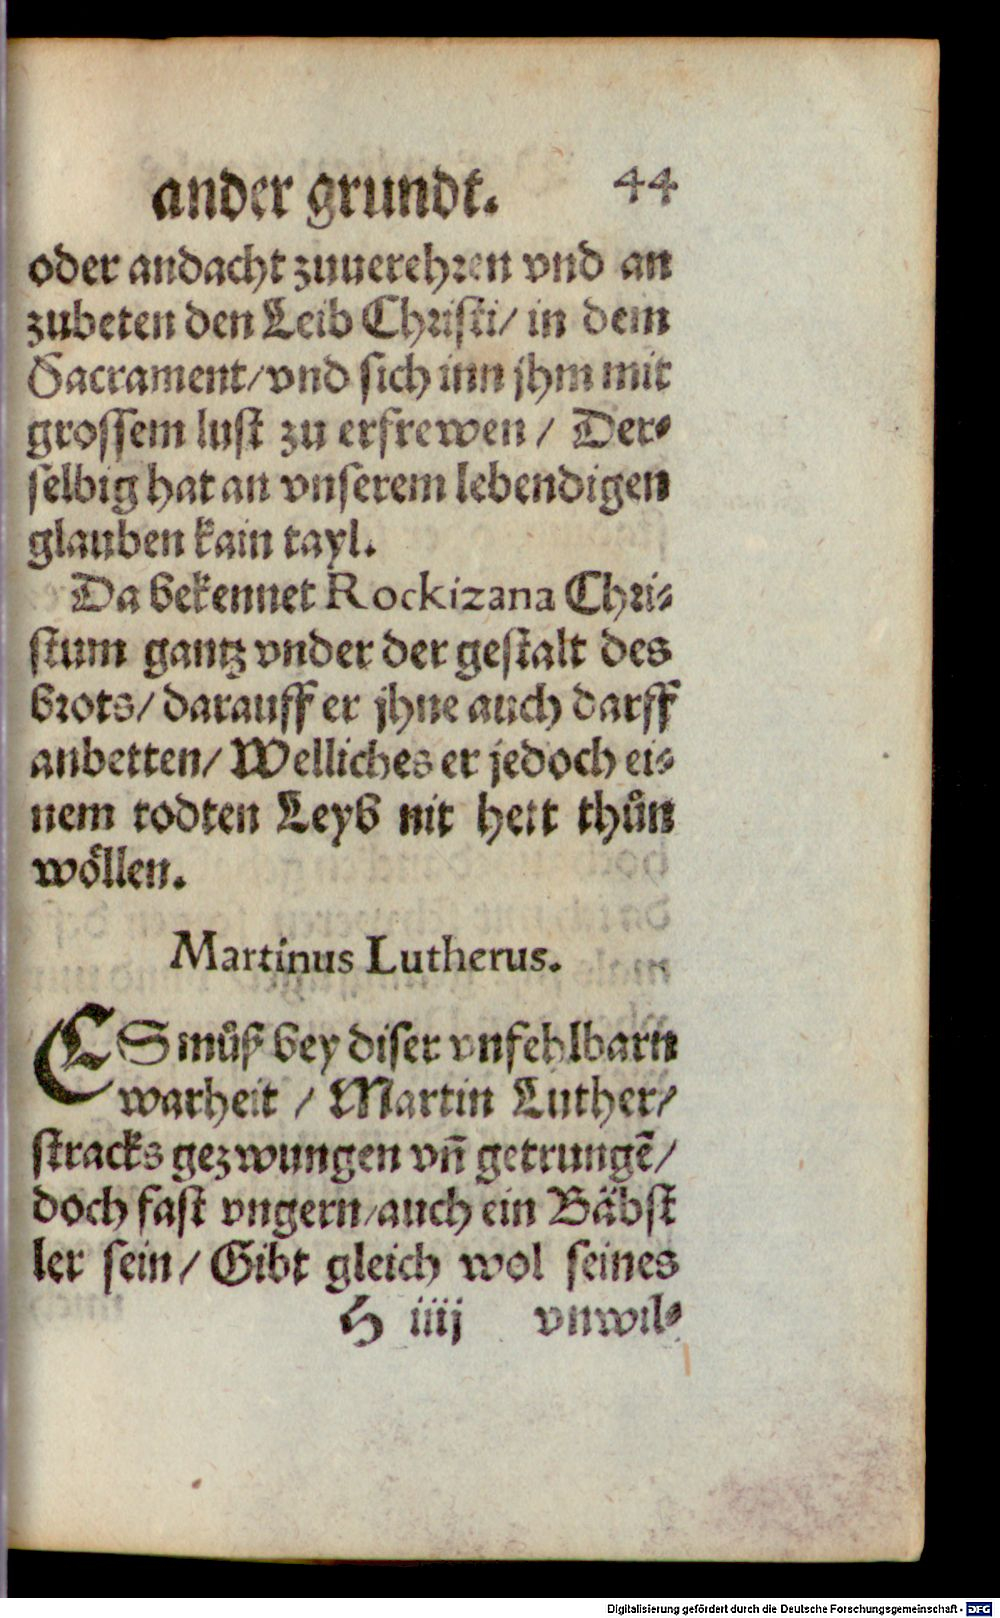 ander grundt. 44
oder andacht zuuerehren vnd an
zubeten den Leib Christi/ in dem
Sacrament/vnd sich inn jhm mit
grossem lust zu erfrewen / Der-
selbig hat an vnserem lebendigen
glauben kain tayl.
Da bekennet Rockizana Chri-
stum gantz vnder der gestalt des
brots/ darauff er jhne auch darff
anbetten/ Welliches er jedoch ei-
nem todten Leyb nit hett thůn
wöllen.
Martinus Lutherus.
ES můß bey diser vnfehlbarn
warheit / Martin Luther/
stracks gezwungen vñ getrungẽ/
doch fast vngern/auch ein Bäbst
ler sein/ Gibt gleich wol seines
H iiij vnwil-
Digitalisierung gefördert durch die Deutsche Forschungsgemeinschaft - DFG